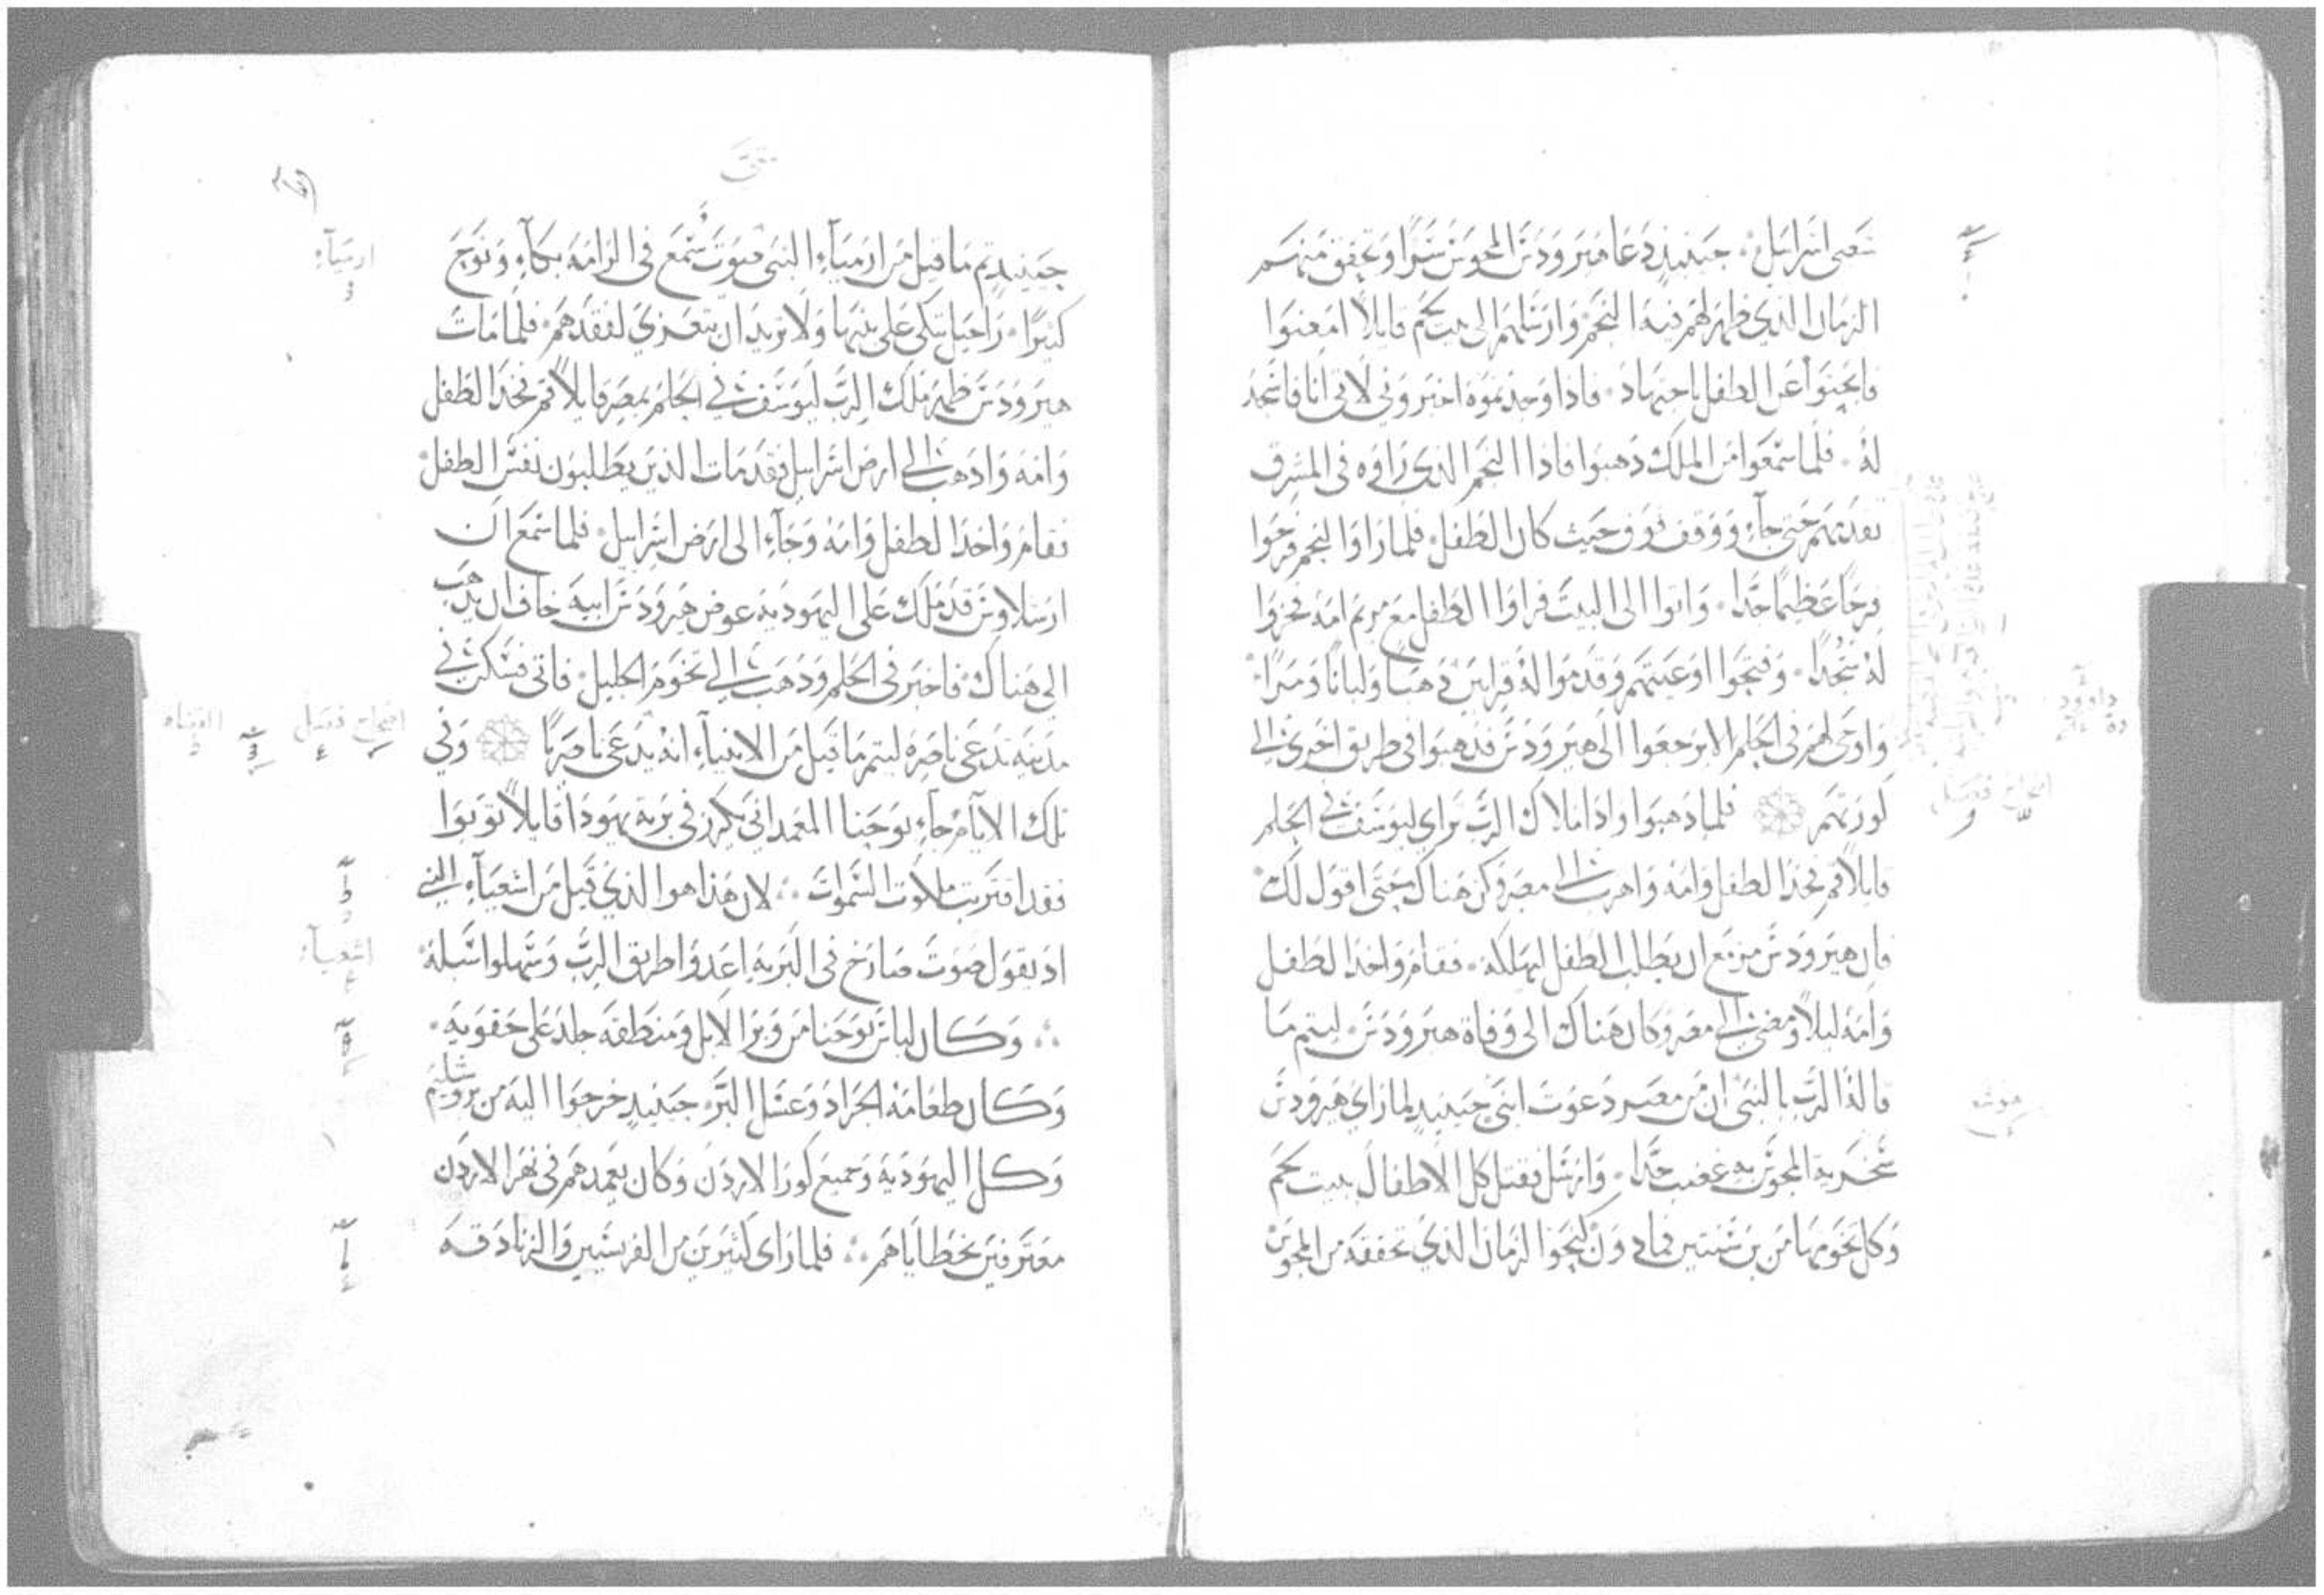 شعبي اسرايل حينيذ دعا هيرودس المجوس سرا وتحقق منهم
الزمان الذي ظهر لهم فيه النجم وارسلهم الى بيت لحم قايلا امضوا
فابحثوا عن الطفل باجتهاد فاذا وجدتموه اخبروني لاتي انا فاسجد
له فلما سمعوا من الملك ذهبوا فاذا النجم الذي راوه في المشرق
تقدمهم حتى جاء ووقف فوق حيث كان الطفل فلما راوا النجم فرحوا
فرحا عظيما جدا واتوا الى البيت فراوا الطفل مع مريم امه فخروا
له سجدا وفتحوا اوعيتهم وقدموا له قرابين ذهبا ولبانا ومرا
واوحى لهم في الحلم الا يرجعوا الى هيرودس فذهبوا في طريق اخرى الى
كورتهم فلما ذهبوا واذا ملاك الرب تراى ليوسف في الحلم
قايلا قم فخذ الطفل وامه واهرب الى مصر وكن هناك حتى اقول لك
فان هيرودس مزمع ان يطلب الطفل ليهلكه فقام واخذ الطفل
وامه ليلا ومضى الى مصر وكان هناك الى وفاة هيرودس ليتم ما
قاله الرب بالنبي ان من مصر دعوت ابني حينيذ لما راى هيرودس
سخرية المجوس به غضب جدا وارسل فقتل كل الاطفال ببيت لحم
وكل تخومها من بن سنتين فما دون كنحو الزمان الذي تحققه من المجوس
داوود
اصحاح فصل
متى
حينيذ تم ما قيل من ارمياء النبي صوت سمع في الرامه بكاء ونوح
كثيرا راحيل تبكي على بنيها ولا تريد ان تتعزي لفقدهم فلما مات
هيرودس ظهر ملاك الرب ليوسف في الحلم بمصر قايلا قم فخذ الطفل
وامه واذهب الى ارض اسراييل فقد مات الذين يطلبون نفس الطفل
فقام واخذ الطفل وامه وجاء الى ارض اسراييل فلما سمع ان
ارشلاوس قد ملك على اليهودية عوض هيرودس ابيه خاف ان يذهب
الى هناك فاخبر في الحلم وذهب الى تخوم الجليل فاتى فسكن في
مدينة تدعى ناصرة ليتم ما قيل من الانبياء انه يدعى ناصريا وفي
تلك الايام جاء يوحنا المعمداني يكرز في برية يهودا قايلا توبوا
فقد اقتربت ملكوت السموات لان هذا هو الذي قيل من اشعياء النبي
اذ يقول صوت صارخ في البرية اعدوا طريق الرب وسهلوا سبله
وكان لباس يوحنا من وبر الابل ومنطقه جلد على حقويه
وكان طعامه الجراد وعسل البر حينيذ خرجوا اليه من يروشليم
وكل اليهودية وجميع كور الاردن وكان يعمدهم في نهر الاردن
معترفين بخطاياهم فلما راى كثيرين من الفريسيين والزنادقه
ارمياء
اصحاح فصل
اشعياء